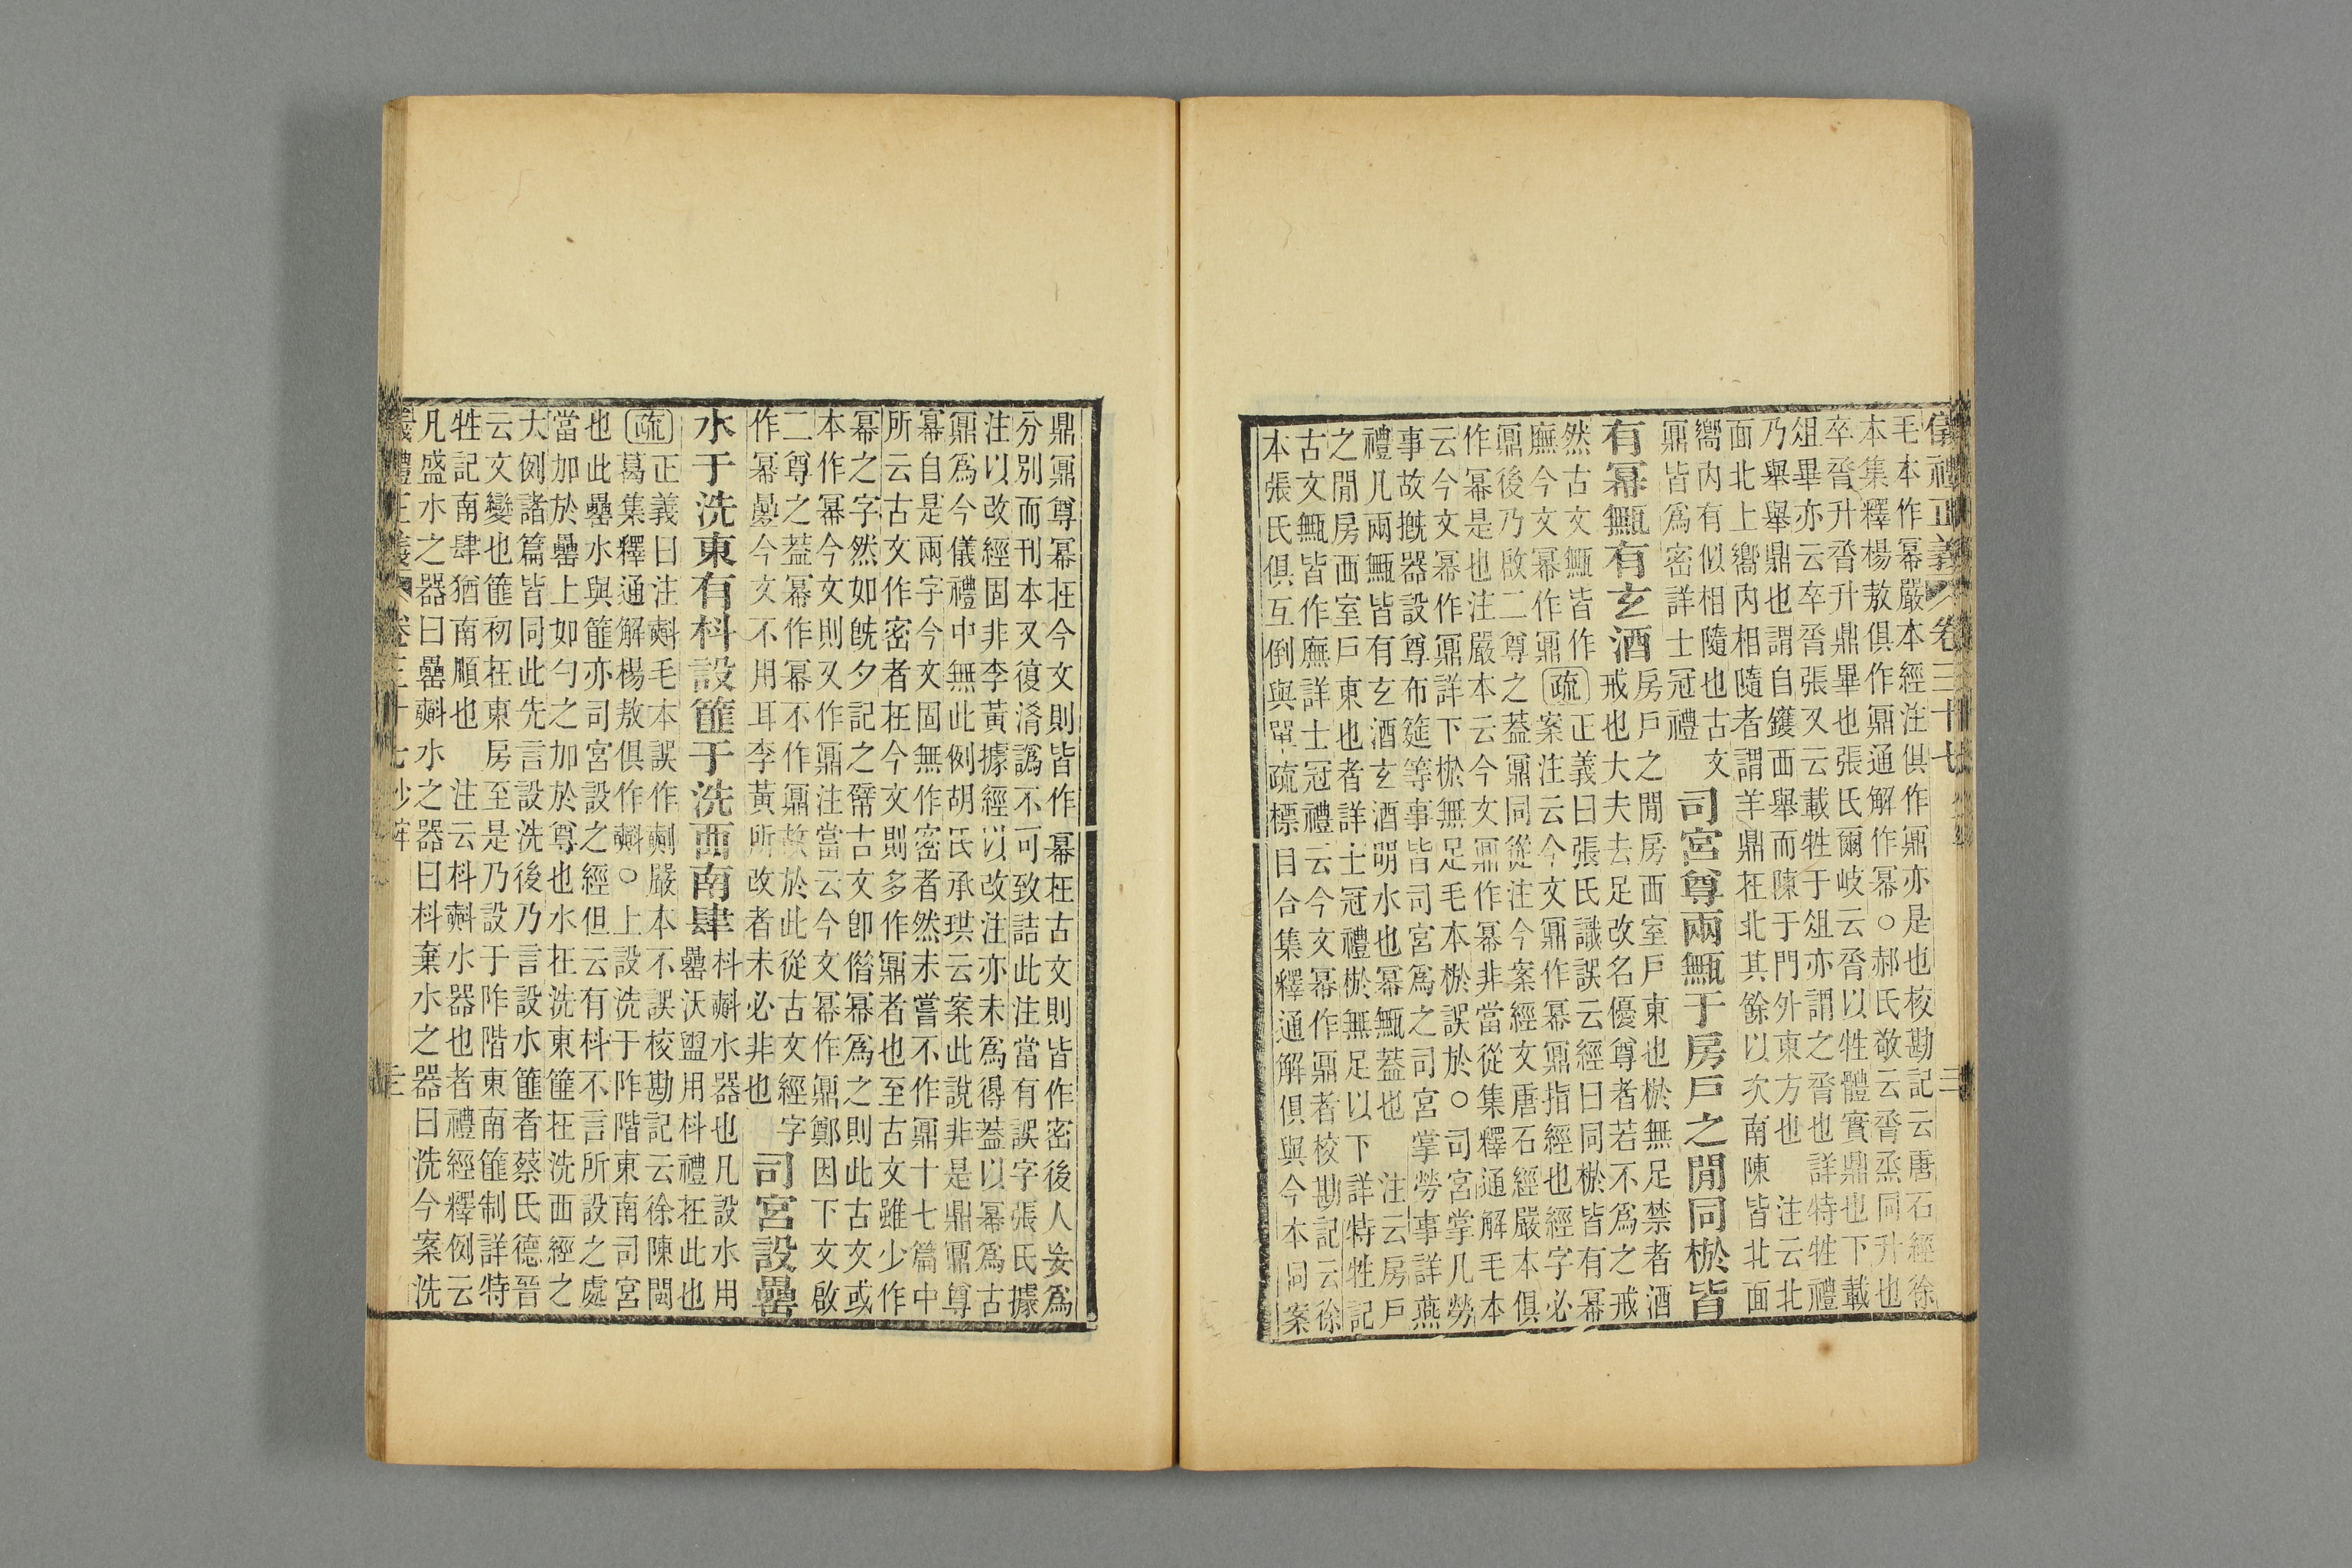 儀禮正義 卷三十七 三
毛本作冪嚴本經注俱作鼏亦是也校勘記云唐石經徐
本集釋楊敖俱作鼎通解作冪○郝氏敬云脀烝同升也
卒脀升脀升鼎畢也張氏爾岐云脀以牲體實鼎也下載
俎畢亦云卒脀張又云載牲于俎亦謂之脀也 詳特牲禮
乃舉舉鼎也謂自鑊西舉而陳于門外東方也 注云北
面北上嚮內相隨者謂羊鼎在北其餘以次南陳皆北面
嚮內有似相隨也古文
鼏皆為密詳士冠禮
司宮尊兩甒于房戶之閒同棜皆
有冪甒有玄酒
房戶之閒房西室戶東也棜無足禁者酒
戒也大夫去足改名優尊者若不為之戒
然古文甒皆作
廡今文冪作鼏
疏
正義曰張氏識誤云經曰同棜皆有冪
案注云今文鼏作冪鼏指經也經字必
鼏後乃啟二尊之蓋鼏同從注今案經文唐石經嚴本俱
作冪是也注嚴本云今文鼏作冪非當從集釋通解毛本
云今文冪作鼏詳下棜無足毛本棜誤於○司宮掌几勞
事故摡器設尊布筵等事皆司宮為之司宮掌勞事詳燕
禮几兩甒皆有玄酒玄酒明水也冪甒蓋也 注云房戶
之閒房西室戶東也者詳士冠禮棜無足以下詳特牲記
古文甒皆作廡詳士冠禮云今文冪作鼏者校勘記云徐
本張氏俱互倒與單疏標目合集釋通解俱與今本同案
鼎鼏尊冪在今文則皆作冪在古文則皆作密後人妄為
分別而刊本又復淆譌不可致詰此注當有誤字張氏據
注以改經固非李黃據經以改注亦未為得蓋以冪為古
鼏為今儀禮中無此例胡氏承珙云案此說非是鼎鼏尊
冪自是兩字今文固無作密者然未嘗不作鼏十七篇中
所云古文作密者在今文則多作鼏者也至古文雖少作
冪之字然如旣夕記之幦古文卽偕冪為之則此古文或
本作冪今文則又作鼏注當云今文冪作鼎鄭因下文啟
二尊之蓋冪作冪不作鼏故於此從古文經字
作冪疊今文不用耳李黃所改者未必非也
司宮設罍
水于洗東有枓設篚于洗西南肆
枓㪺水器也凡設水用
罍沃盥用枓禮在此也
疏
正義曰注㪺毛本誤作㪺嚴本不誤校勘記云徐陳閩
葛集釋通解楊敖俱作㪺○上設洗于阼階東南司宮
也此罍水與篚亦司宮設之經但云有枓不言所設之處
當加於罍上如勺之加於尊也水在洗東篚在洗西經之
大例諸篇皆同此先言設洗後乃言設水篚者蔡氏德晉
云文變也篚初在東房至是乃設于阼階東南篚制詳特
牲記南肆猶南順也 注云枓㪺水器也者禮經釋例云
凡盛水之器曰罍㪺水之器曰枓棄水之器曰洗今案洗
儀禮正義 卷三十七 三